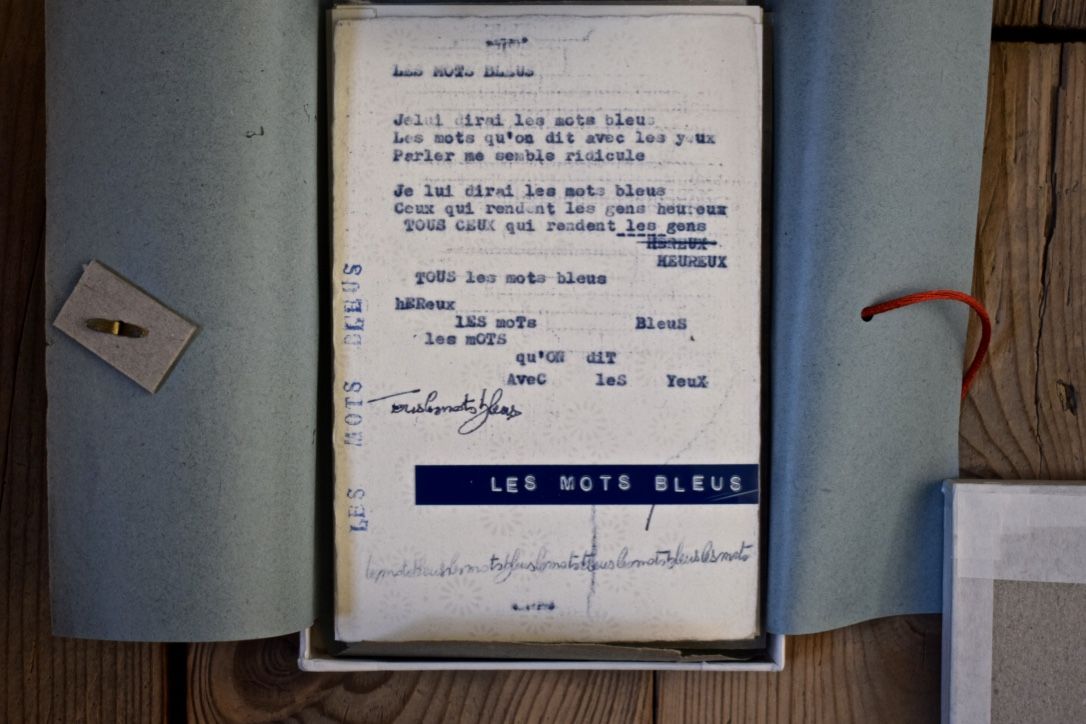 LES MOTS BLEUS
Jelui dirai les mots bleus
Les mots qu'on dit avec les yeux
Parler me semble ridicule
Je lui dirai les mots bleus
Ceux qui rendent les gens heureux
TOUS CEUX qui rendent les gens
HEREUX
HEUREUX
TOUS les mots bleus
hEReux
lES moTs BleuS
les mOTS
qu'ON diT
AveC leS YeuX
Touslesmotsbleus
LES MOTS BLEUS
LES MOTS BLEUS
lesmotsbleuslesmotsbleuslesmotsbleuslesmotsbleuslesmots